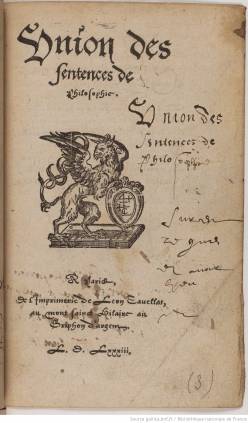 Vnion des
sentences de
Philosophie.
Vnion des
sentences de
Philosophie
A Paris
De l'Imprimerie de Leon Cauellat,
au mont saint Hilaire au
Griphon d'argent.
(3)
Source gallica.bnf.fr / Bibliothèque nationale de France